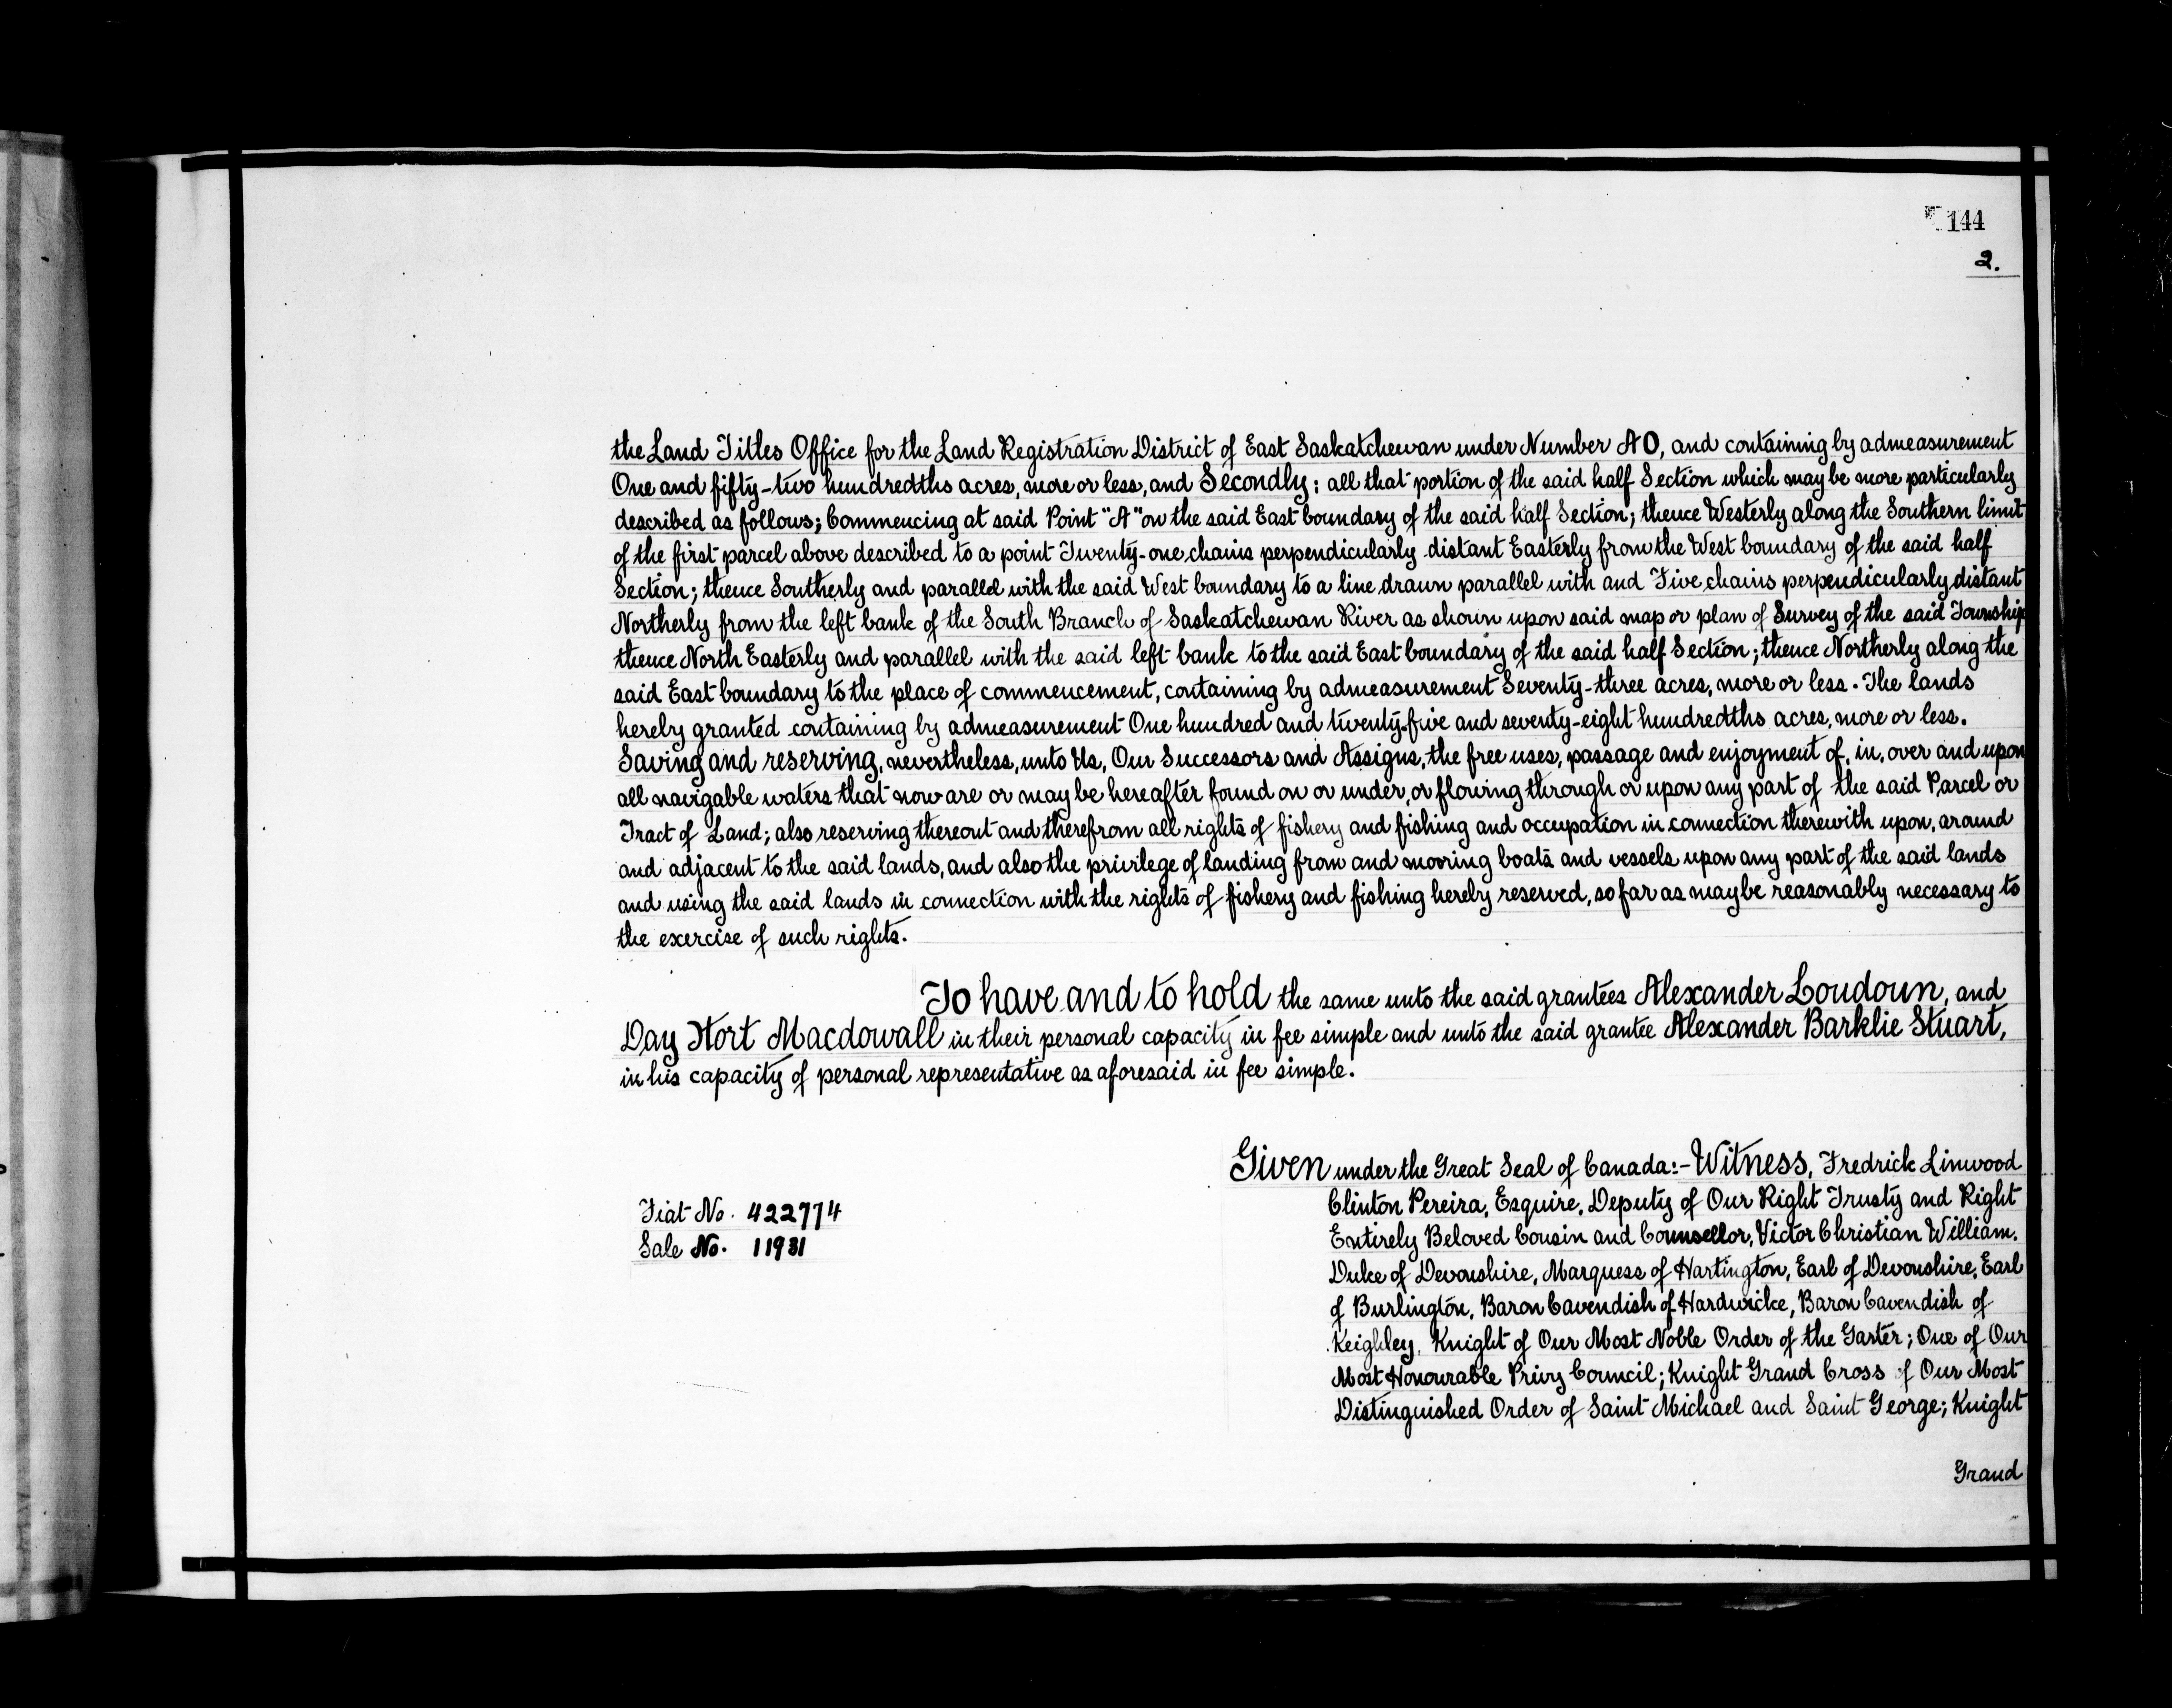 144
2.
the Land Titles Office for the Land Registration District of East Saskatchewan under Number A O, and containing by admeasurement
One and fifty-two hundredths acres, more or less, and Secondly: all that portion of the said half Section which may be more particularly
described as follows; Commencing at said Point "A" on the said East boundary of the said half Section; thence Westerly along the Southern limit
of the first parcel above described to a point Twenty-one chains perpendicularly distant Easterly from the West boundary of the said half
Section; thence Southerly and parallel with the said West boundary to a line drawn parallel with and Five chains perpendicularly distant
Northerly from the left bank of the South Branch of Saskatchewan River as shown upon said map or plan of Survey of the said Township
thence North Easterly and parallel with the said left bank to the said East boundary of the said half Section; thence Northerly along the
said East boundary to the place of commencement, containing by admeasurement Seventy-three acres, more or less. The lands
hereby granted containing by admeasurement One hundred and twenty-five and seventy-eight hundredths acres, more or less.
Saving and reserving, nevertheless, unto Us, Our Successors and Assigns, the free uses, passage and enjoyment of, in, over and upon
all navigable waters that now are or may be hereafter found on or under, or flowing through or upon any part of the said Parcel or
Tract of Land; also reserving thereout and therefrom all rights of fishery and fishing and occupation in connection therewith upon, around
and adjacent to the said lands, and also the privilege of landing from and mooring boats and vessels upon any part of the said lands
and using the said lands in connection with the rights of fishery and fishing hereby reserved, so far as may be reasonably necessary to
the exercise of such rights.
To have and to hold the same unto the said grantees Alexander Loudoun, and
Day Hort Macdowall in their personal capacity in fee simple and unto the said grantee Alexander Barklie Stuart,
in his capacity of personal representative as aforesaid in fee simple.
Given under the Great Seal of Canada:- Witness, Fredrick Linwood
Clinton Pereira, Esquire, Deputy of Our Right Trusty and Right
Entirely Beloved Cousin and Counsellor, Victor Christian William,
Duke of Devonshire, Marquess of Hartington, Earl of Devonshire, Earl
of Burlington, Baron Cavendish of Hardwicke, Baron Cavendish of
Keighley, Knight of Our Most Noble Order of the Garter; One of Our
Most Honourable Privy Council; Knight Grand Cross of Our Most
Distinguished Order of Saint Michael and Saint George; Knight
Grand
Fiat No. 422774
Sale No. 11931